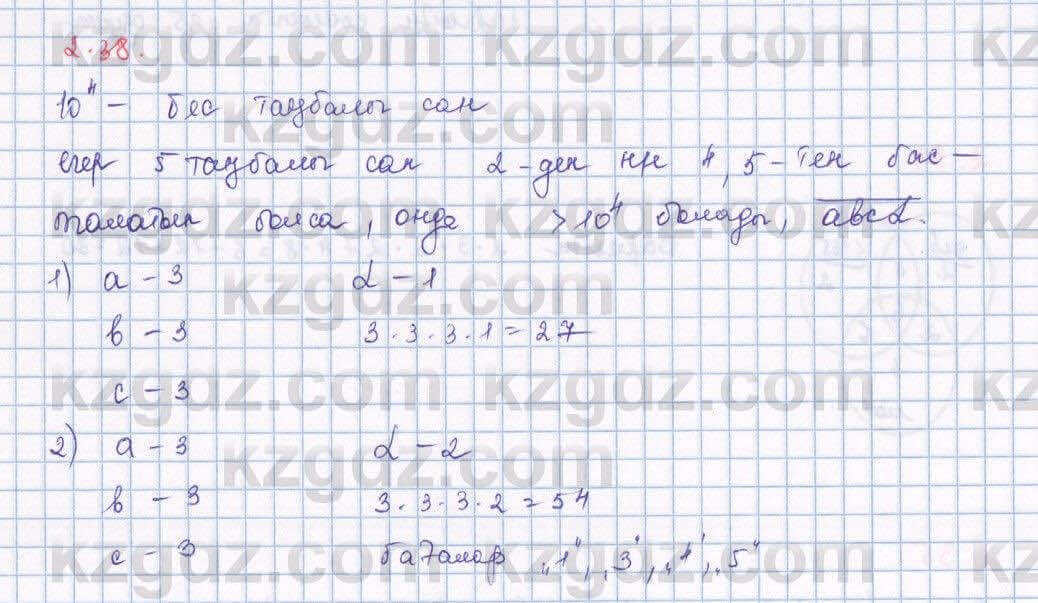 2.38.
10⁴ – бес таңбалы сан
егер 5 таңбалы сан 2-ден не 4, 5-тен бас–
талатын болса, онда > 10⁴ болады, авсd.
1) а – 3 d – 1
в – 3 3 · 3 · 3 · 1 = 27
с – 3
2) а – 3 d – 2
в – 3 3 · 3 · 3 · 2 = 54
с – 3 „1“, „3“, „4“, „5“
kzgdz.com